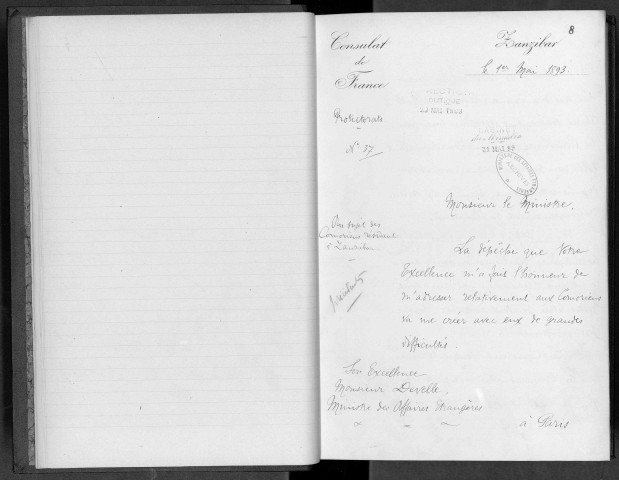 8
Consulat
de
France
Zanzibar
le 1er Mai 1893.
Protectorats
N° 57
Monsieur le Ministre,
Au sujet des
Comoriens résidant
à Zanzibar
La dépêche que Votre
Excellence m'a fait l'honneur de
m'adresser relativement aux Comoriens
va me créer avec eux de grandes
difficultés.
Son Excellence
Monsieur Develle.
Ministre des Affaires Etrangères
à Paris